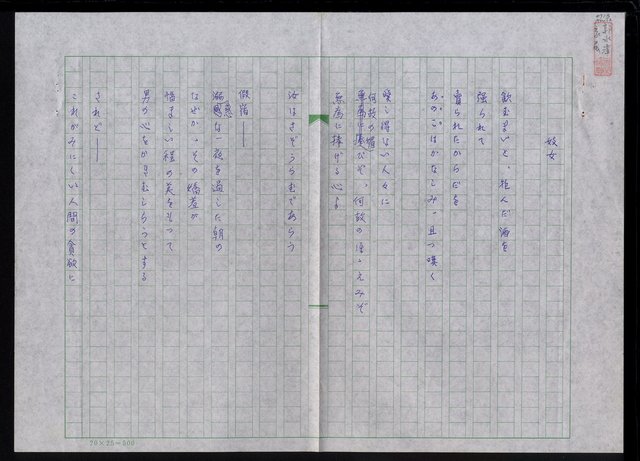 妓女
飲むまいと、拒んだ酒を
强られて
賣られたからだを
はかなしみ、且つ嘆く
解し得ない人々に
何故の媚
何故のほゝえみぞ
無為に捧げる心よ
汝はさぞうらむであらう
假宿——
惑
溺惑な一夜を過した朝の
なぜか、その嬌羞が
惜ましい程の美をもつて
男の心をかきむしらうとする
されど——
これがみにくい人間の貪欲に
20×25=500